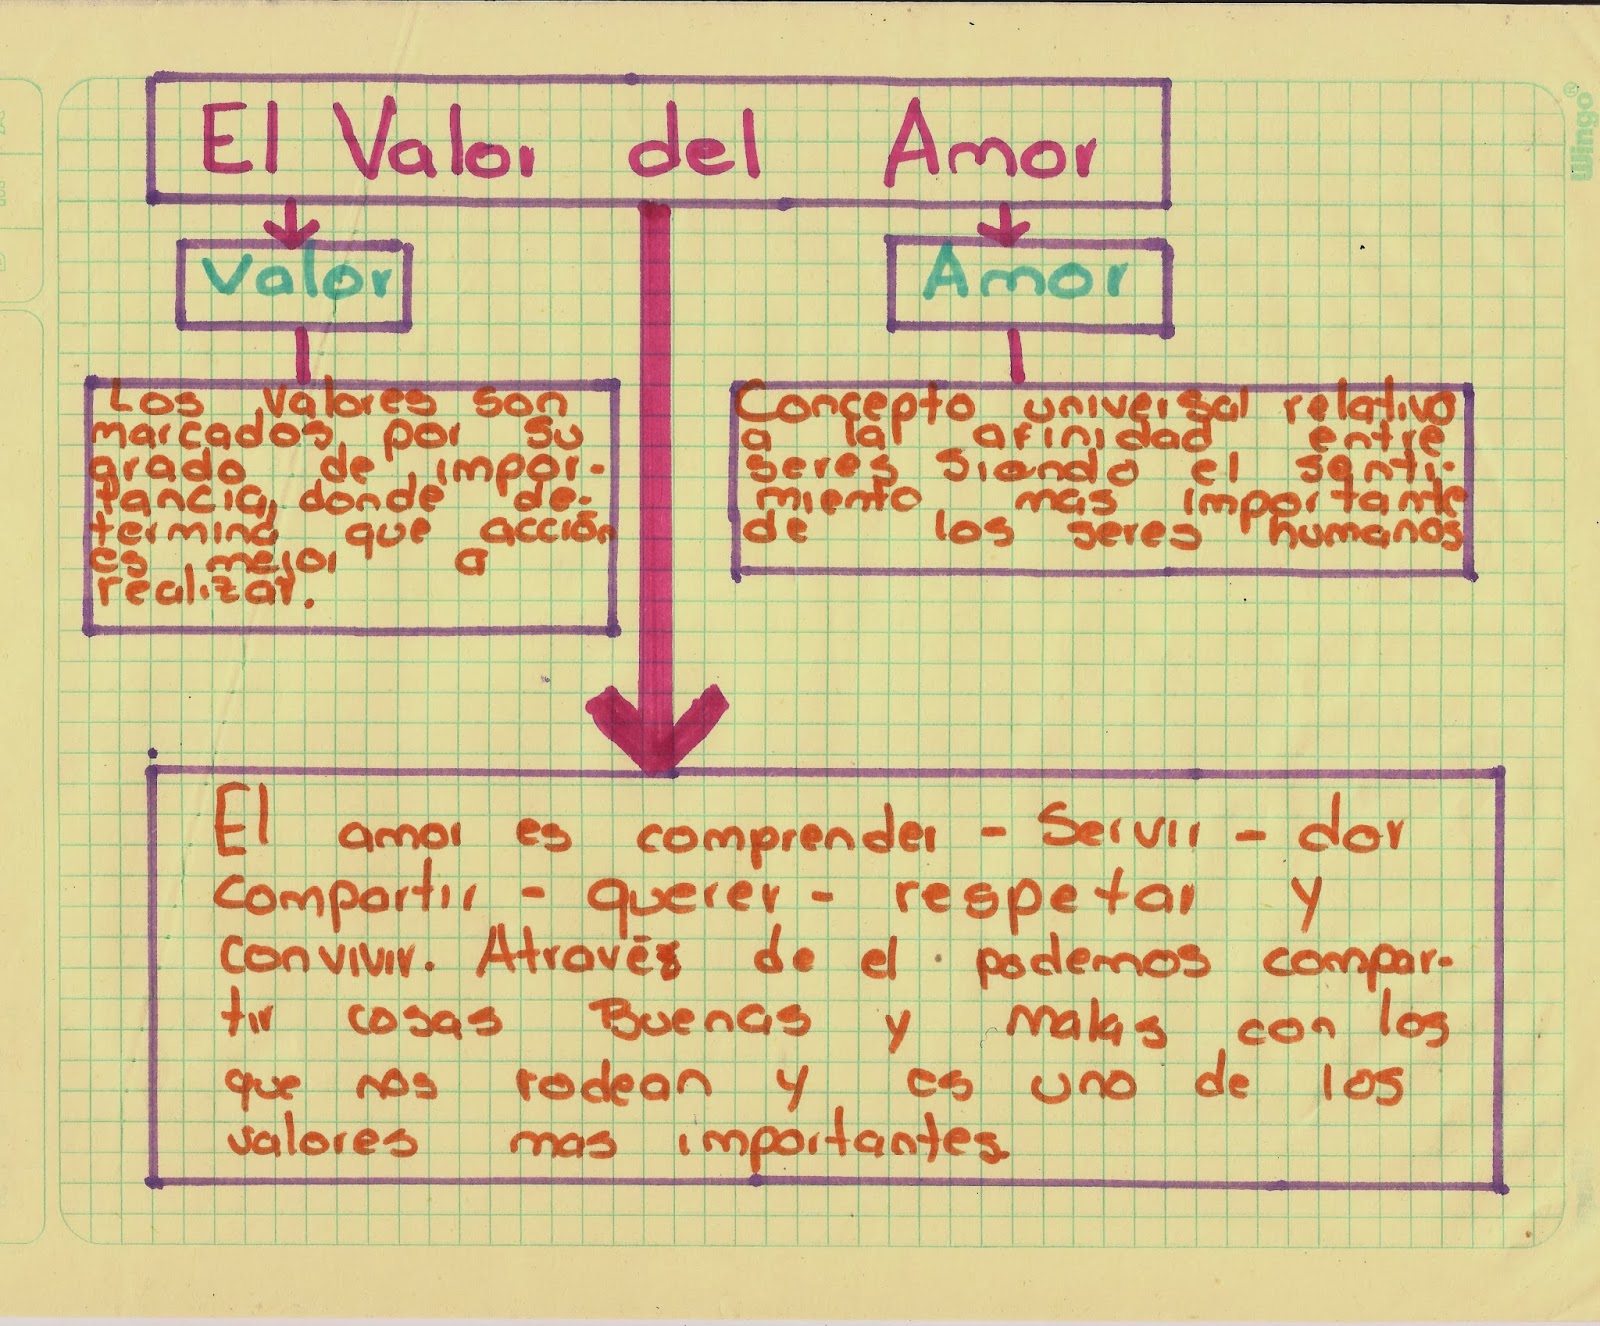 El Valor del Amor
Valor
Amor
Los Valores son
marcados, por su
grado de impor-
tancia, donde de-
termina que acción
es mejor a
realizar.
Concepto universal relativo
a la afinidad entre
seres siendo el senti-
miento mas importante
de los seres humanos
El amor es comprender - Servir - dar
compartir - querer - respetar y
convivir. Através de el podemos compar-
tir cosas Buenas y Malas con los
que nos rodean y es uno de los
valores mas importantes.
Wingo®